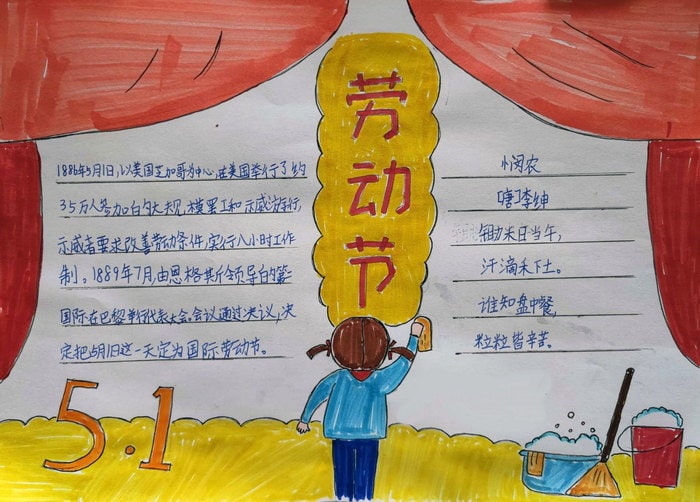 劳动节
1886年5月1日,以美国芝加哥为中心,在美国举行了约
35万人参加的大规模罢工和示威游行,
示威者要求改善劳动条件,实行八小时工作
制。1889年7月,由恩格斯领导的第一
国际在巴黎举行代表大会,会议通过决议,决
定把5月1日这一天定为国际劳动节。
悯农
[唐]李绅
锄禾日当午,
汗滴禾下土。
谁知盘中餐,
粒粒皆辛苦。
5.1